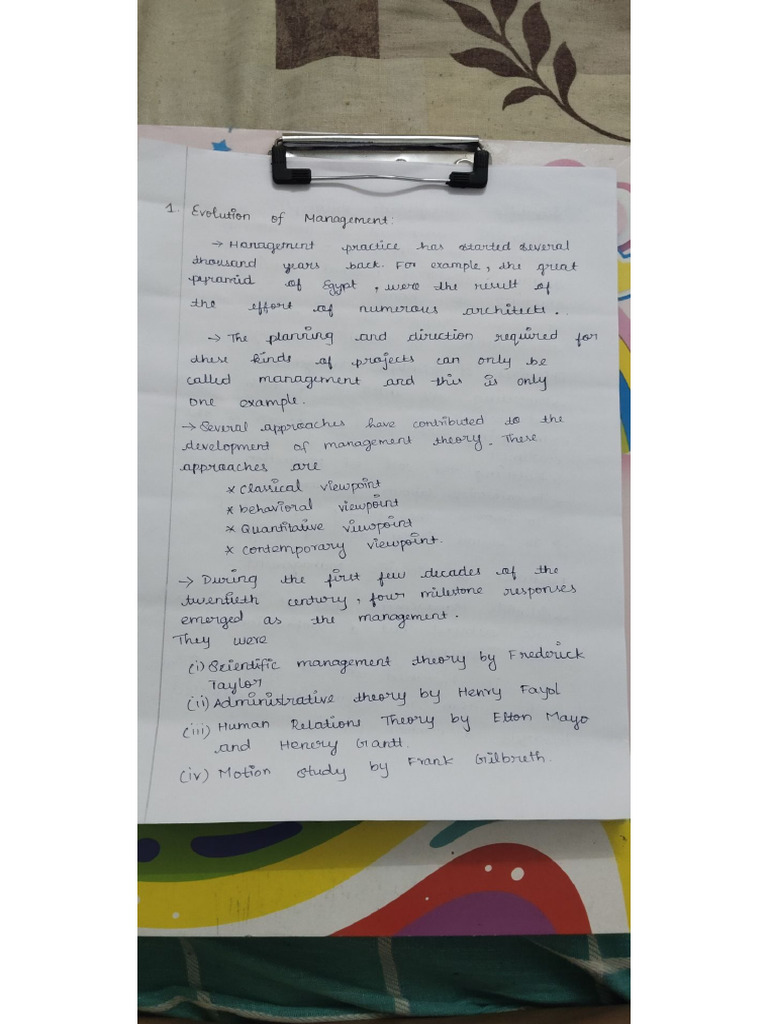 1. Evolution of Management:
→ Management practice has started several
thousand years back. For example, the great
pyramid of Egypt, were the result of
the effort of numerous architects.
→ The planning and direction required for
these kinds of projects can only be
called management and this is only
one example.
→ Several approaches have contributed to the
development of management theory. These
approaches are
* Classical viewpoint
* behavioral viewpoint
* Quantitative viewpoint
* contemporary viewpoint.
→ During the first few decades of the
twentieth century, four milestone responses
emerged as the management.
They were
(i) Scientific management theory by Frederick
Taylor
(ii) Administrative theory by Henry Fayol
(iii) Human Relations Theory by Elton Mayo
and Henery Gantt.
(iv) Motion study by Frank Gilbreth.